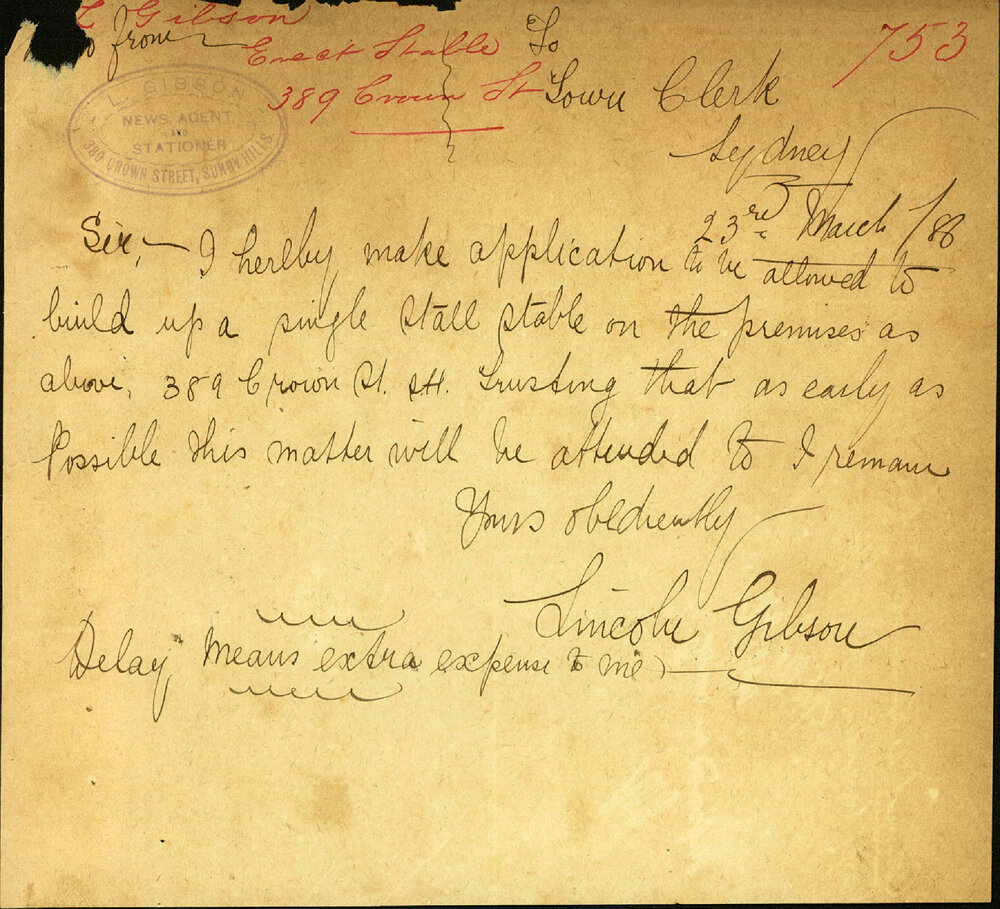 L Gibson
from
Erect Stable
389 Crown St
753
L. GIBSON
NEWS AGENT
AND
STATIONER
389 CROWN STREET, SURRY HILLS.
To
Town Clerk
Sydney
23rd March /88
Sir, I hereby make application to be allowed to
build up a single stall stable on the premises as
above, 389 Crown St. S.H. Trusting that as early as
Possible this matter will be attended to I remain
Yours obediently
Lincoln Gibson
Delay means extra expense to me